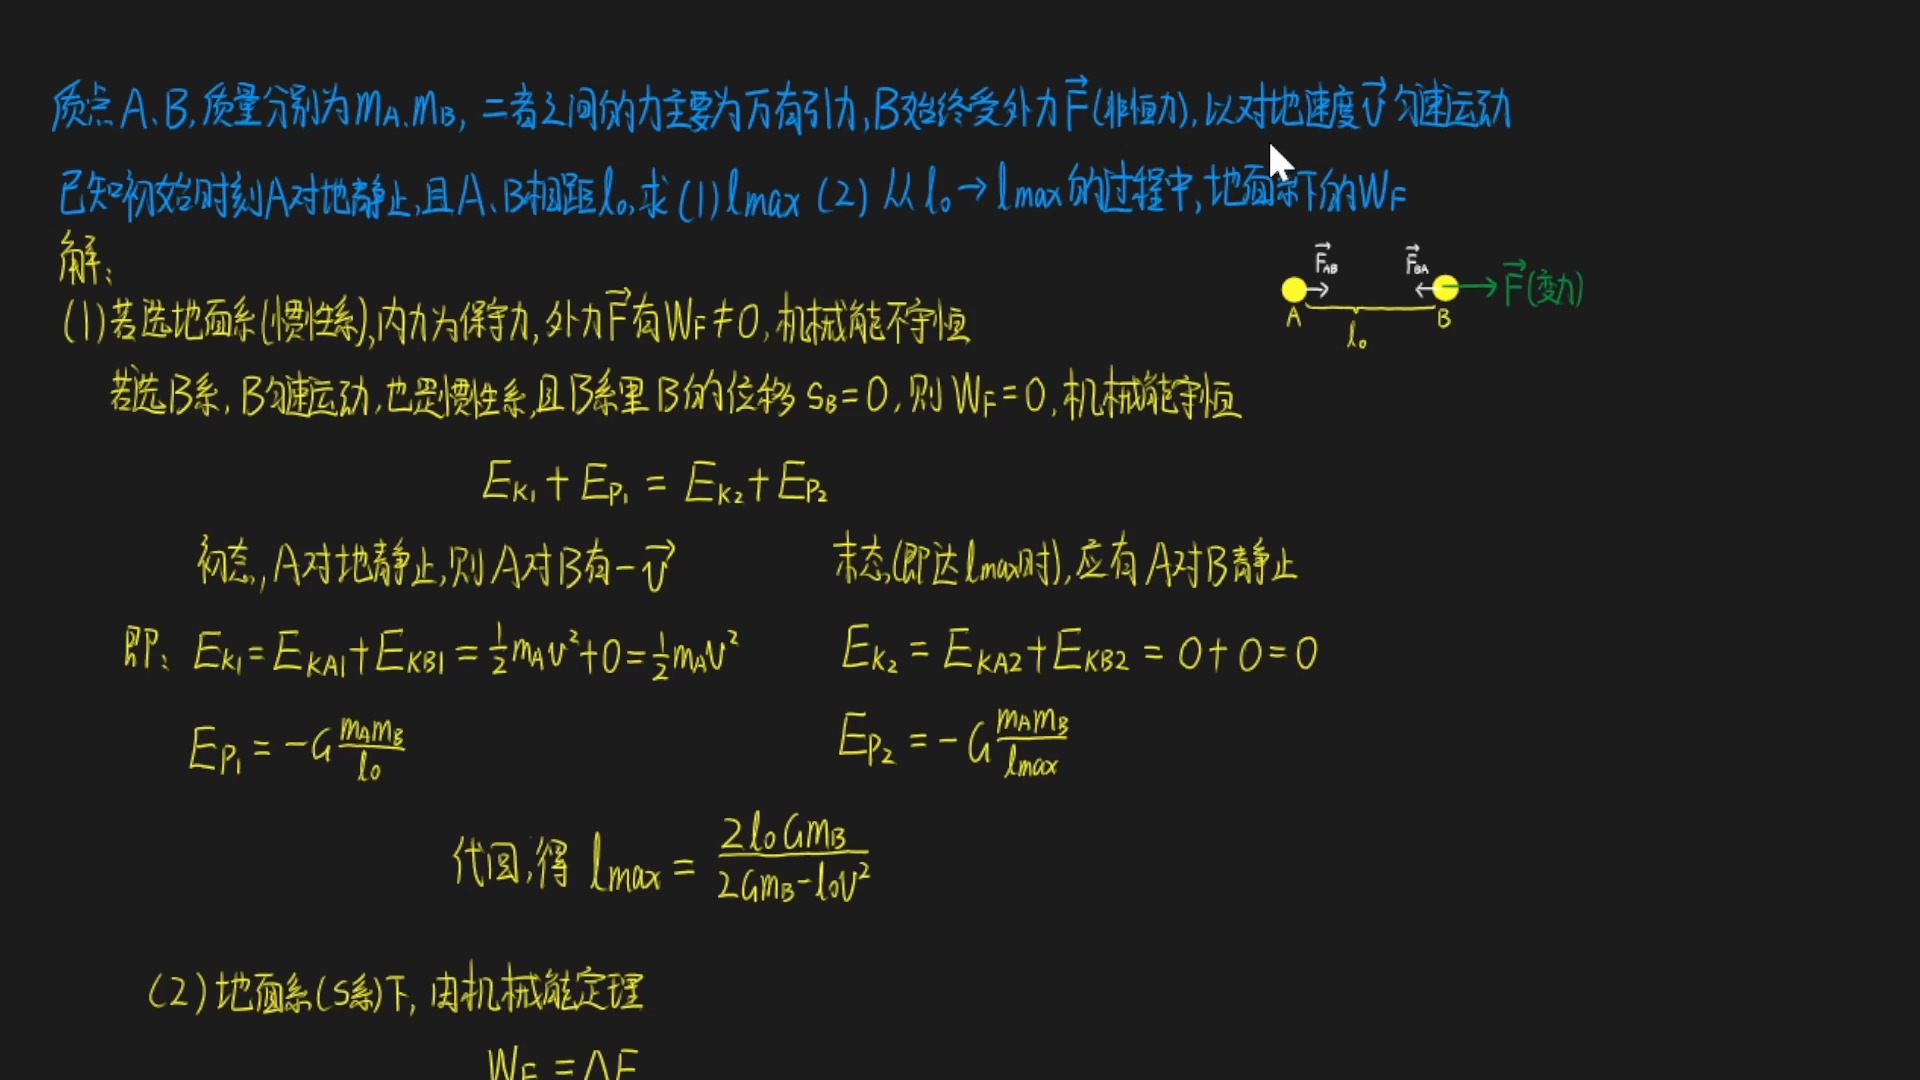 质点A、B,质量分别为mA、mB,二者之间的力主要为万有引力,B始终受外力F⃗(非恒力),以对地速度v⃗匀速运动
已知初始时刻A对地静止,且A、B相距l₀,求(1)lmax (2)从l₀→lmax的过程中,地面系下的WF
解:
F⃗AB F⃗BA F⃗(变力)
A B
l₀
(1)若选地面系(惯性系),内力为保守力,外力F⃗有WF≠0,机械能不守恒
若选B系,B匀速运动,也是惯性系,且B系里B的位移sB=0,则WF=0,机械能守恒
EK₁+EP₁=EK₂+EP₂
初态,A对地静止,则A对B有-v⃗ 末态(即达lmax时),应有A对B静止
即: EK₁=EKA1+EKB1=½mAv²+0=½mAv² EK₂=EKA2+EKB2=0+0=0
EP₁=-G mAmB/l₀ EP₂=-G mAmB/lmax
代回,得 lmax=2l₀GmB/(2GmB-l₀v²)
(2)地面系(S系)下,由机械能定理
WF=ΔE